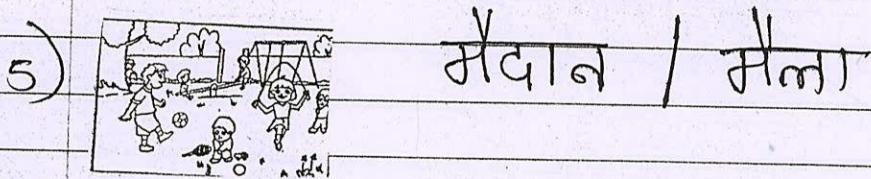 5) मैदान / मैला